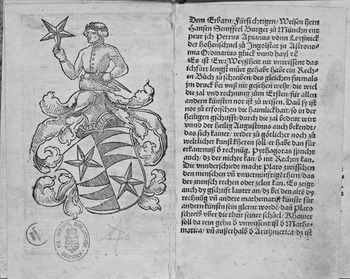 Dem Erbarn Fürsichtigen / Weisen hern
Hansen Senfftel Burger zu München ent
peut ich Petrus Apianus von Leyßnick
der hohenschuel zu Ingolstat in Astrono-
mia Ordinarius glück vnnd hayl ⁊c
Es ist Ewr Weyßheit nit vnwissent das
ich fürr lengst müet gehabt habe ein Rech-
en Büch zu schreiben / des gleichen formals
im druck bey vnß nie gesehen wehr / die weil
die zal vnd rechnung zum Ersten für allen
andern künsten not ist zu wissen. Dan sy ist
not zu erforschen die haimlickhait / so in der
heiligen gschrifft / durch die zal bedeut wirt
vnnd der heilig Augustinus auch bekendet /
das sich kainer wider zu götlicher noch zu
weltlicher kunst keren soll / er habe dan für
erkantnuß der rechnung. Pythagoras spricht
auch / dz der mehr kan / d' nit Rechen kan.
Die vnnderschiede macht Plato zwisschen
den menschen vnd den vnuernünfftigen / das
der mensch rechen oder zelen kan. Es zeigt
auch dz gschicht lauter an / dz bey den alte dy
rechnung vnd andere mathematisch künst für
andere künsten jm glernt worden / vnd Plato
schreib vber die thür seiner schuel. Khainer
soll da rein gehn d' vnwissent ist d' Mathe-
matica / vnd ausserhalb d' Arithmetica dz ist